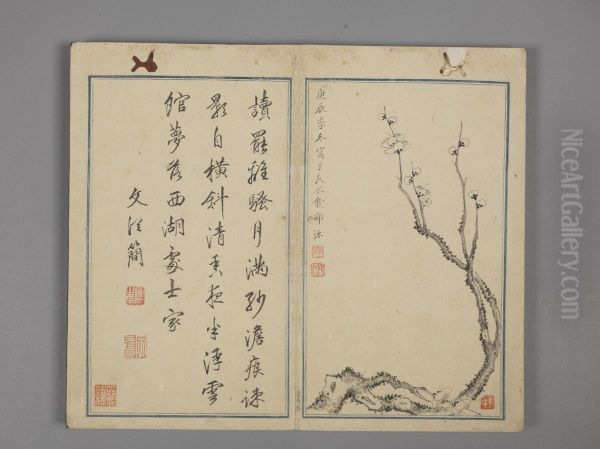 庚辰季冬寫于長水邵彌
讀罷離騷月滿紗澹痕疎
影自橫斜清香夜半浮雲
館夢落西湖處士家
文從簡
NiceArtGallery.com